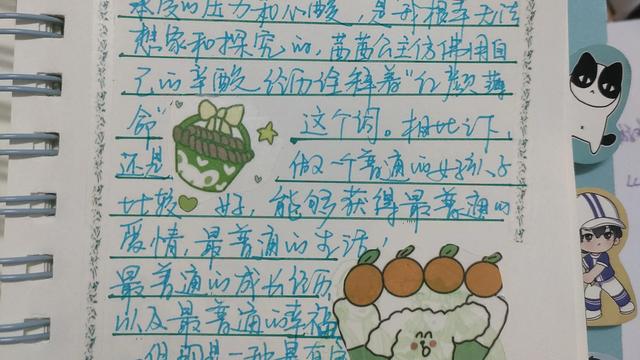 承受的压力和心酸，是我根本无法
想象和探究的，茜茜公主仿佛用自
己的辛酸经历诠释着“红颜薄
命”这个词。相比下，
还是做一个普通的女孩子
比较好，能够获得最普通的
爱情，最普通的生活，
最普通的成长经历
以及最普通的幸福
但